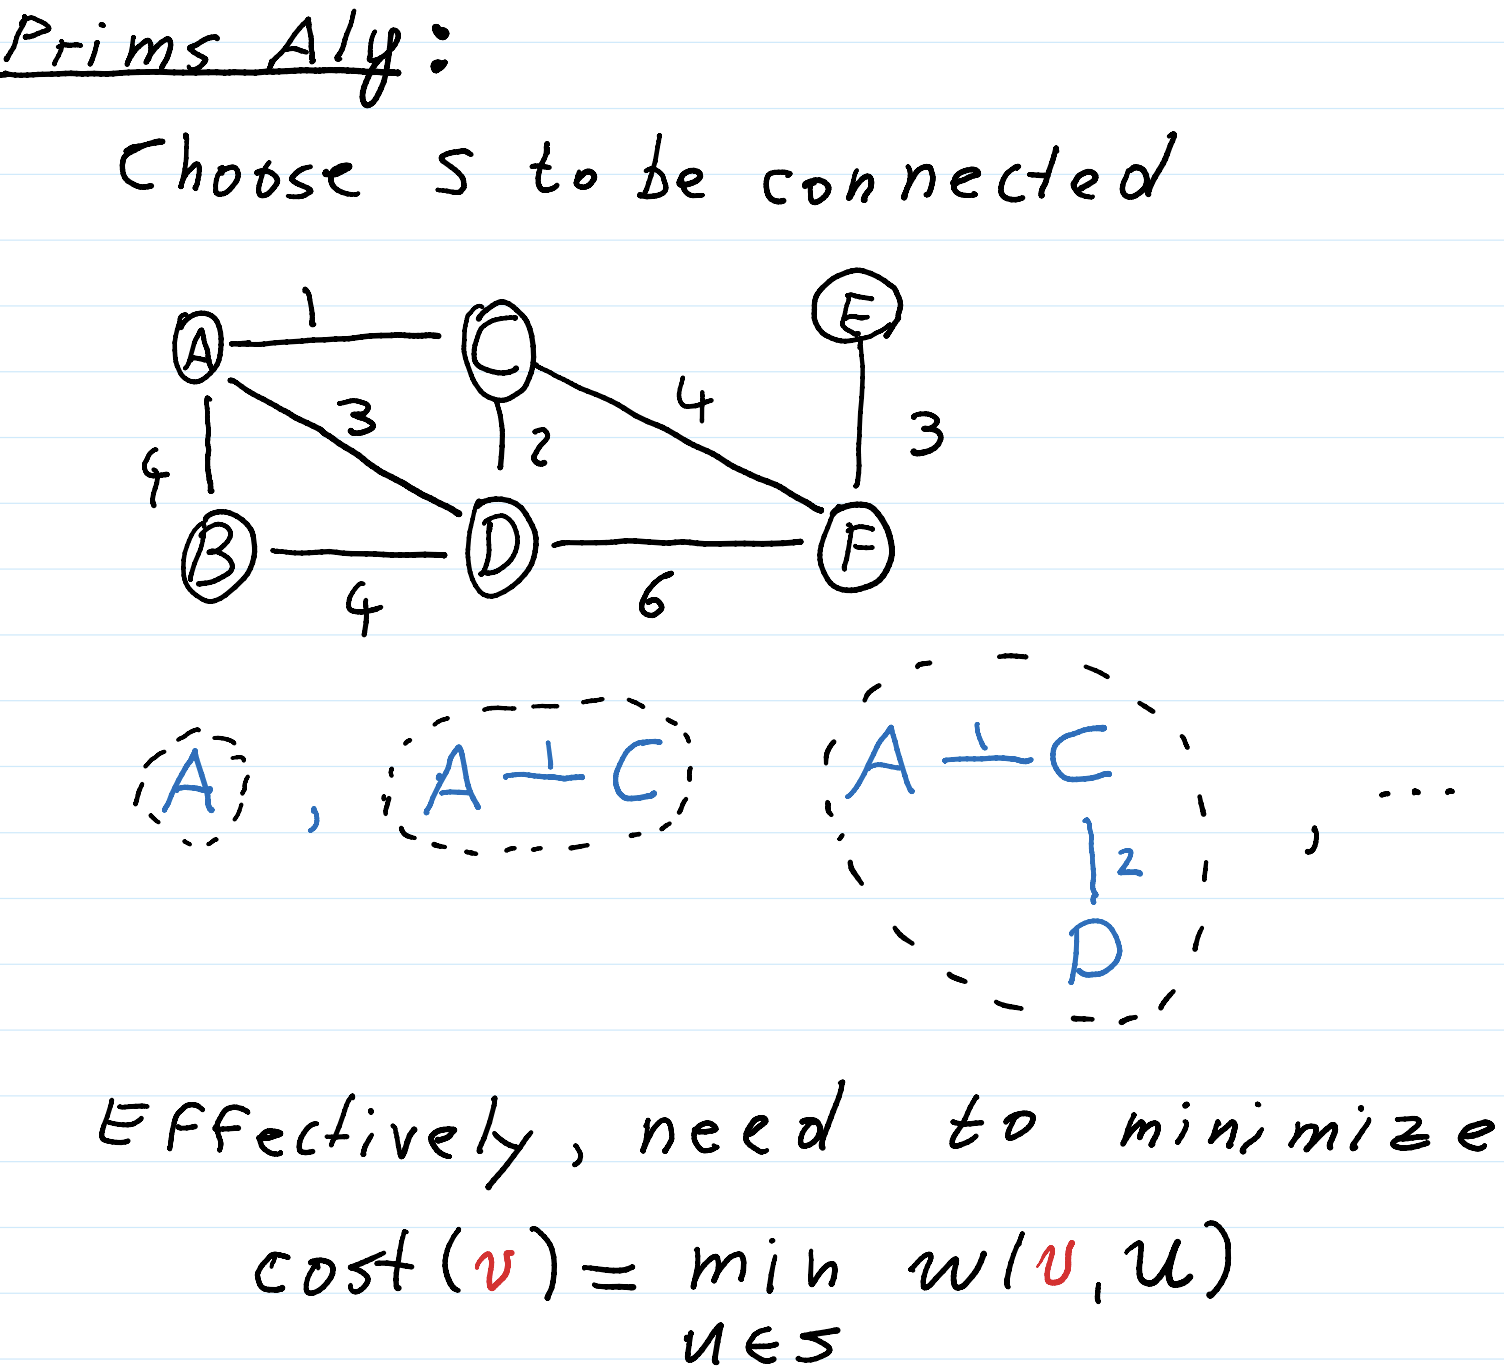 Prims Alg:
Choose S to be connected
1
A C E
3 4 3
4 2
B D F
4 6
A , A 1 C A 1 C , ...
2
D
Effectively, need to minimize
cost(v) = min w(v, u)
u∈S